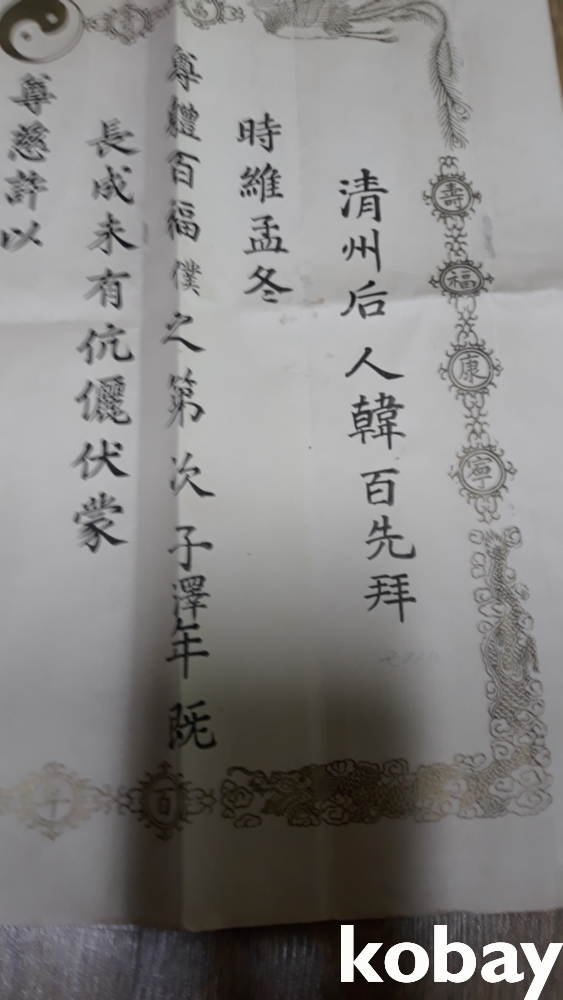 清州后人韓百先拜
時維孟冬
尊體百福僕之第次子澤年既
長成未有伉儷伏蒙
尊慈許以
壽
福
康
寧
百
年
kobay